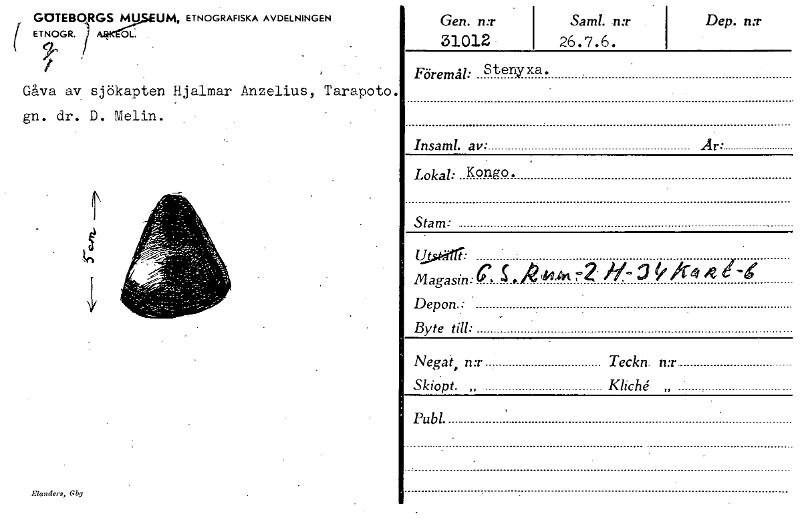 GÖTEBORGS MUSEUM, ETNOGRAFISKA AVDELNINGEN
ETNOGR. ARKEOL.
Gåva av sjökapten Hjalmar Anzelius, Tarapoto.
gn. dr. D. Melin.
5 cm
Elanders, Gbg
Gen. n:r Saml. n:r Dep. n:r
31012 26.7.6.
Föremål: Stenyxa.
Insaml. av: År:
Lokal: Kongo.
Stam:
Utställt:
Magasin: G. S. Rum-2 H-34 Kart-6
Depon.:
Byte till:
Negat, n:r Teckn. n:r
Skiopt. „ Kliché „
Publ.